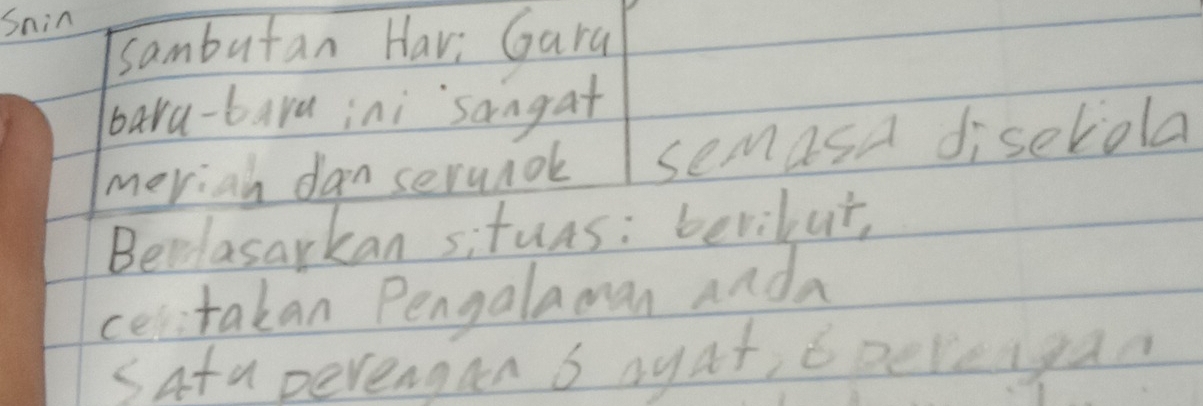 snin
sambutan Hari Guru
baru-baru ini sangat
meriah dan serunok
semasa disekola
Berdasarkan situasi berikut,
ceritakan Pengalaman anda
satu perengan 6 ayat, 6 perengan